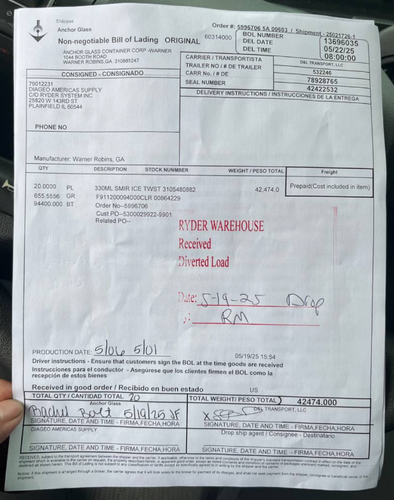 Shipper
Anchor Glass
Non-negotiable Bill of Lading ORIGINAL
60314000
Order #: 5996706 SA 00603 / Shipment - 25021726-1
BOL NUMBER 13696035
DEL DATE 05/22/25
DEL TIME 08:00:00
ANCHOR GLASS CONTAINER CORP -WARNER
1044 BOOTH ROAD
WARNER ROBINS,GA 310885247
CARRIER / TRANSPORTISTA D&L TRANSPORT, LLC
TRAILER NO / # DE TRAILER 532246
CARR No. / # DE 78928765
SEAL NUMBER 42422532
DELIVERY INSTRUCTIONS / INSTRUCCIONES DE LA ENTREGA
CONSIGNED - CONSIGNADO
79012231
DIAGEO AMERICAS SUPPLY
C/O RYDER SYSTEM INC
25820 W 143RD ST
PLAINFIELD IL 60544
PHONE NO
Manufacturer: Warner Robins, GA
QTY DESCRIPTION STOCK NUMBER WEIGHT / PESO TOTAL Freight
20.0000 PL 330ML SMIR ICE TWST 3105480882 42,474.0 Prepaid(Cost included in item)
655.5556 GR F911200094000CLR 00864229
94400.000 BT Order No--5996706
Cust PO--5300029922-9901
Related PO--
RYDER WAREHOUSE
Received
Diverted Load
Date: 5-19-25 Drop
RM
PRODUCTION DATE: 5/06 5/01
05/19/25 15:54
Driver instructions - Ensure that customers sign the BOL at the time goods are received
Instrucciones para el conductor - Asegúrese que los clientes firmen el BOL como la
recepción de estos bienes
Received in good order / Recibido en buen estado US
TOTAL QTY / CANTIDAD TOTAL 20 TOTAL WEIGHT/ PESO TOTAL 42474.000
Anchor Glass D&L TRANSPORT, LLC
Rachel Bolt 5/19/25 X
SIGNATURE, DATE AND TIME - FIRMA,FECHA,HORA
SIGNATURE, DATE AND TIME - FIRMA,FECHA,HORA
DIAGEO AMERICAS SUPPLY
Drop ship agent / Consignee - Destinatario
SIGNATURE, DATE AND TIME - FIRMA,FECHA,HORA
SIGNATURE, DATE AND TIME - FIRMA,FECHA,HORA